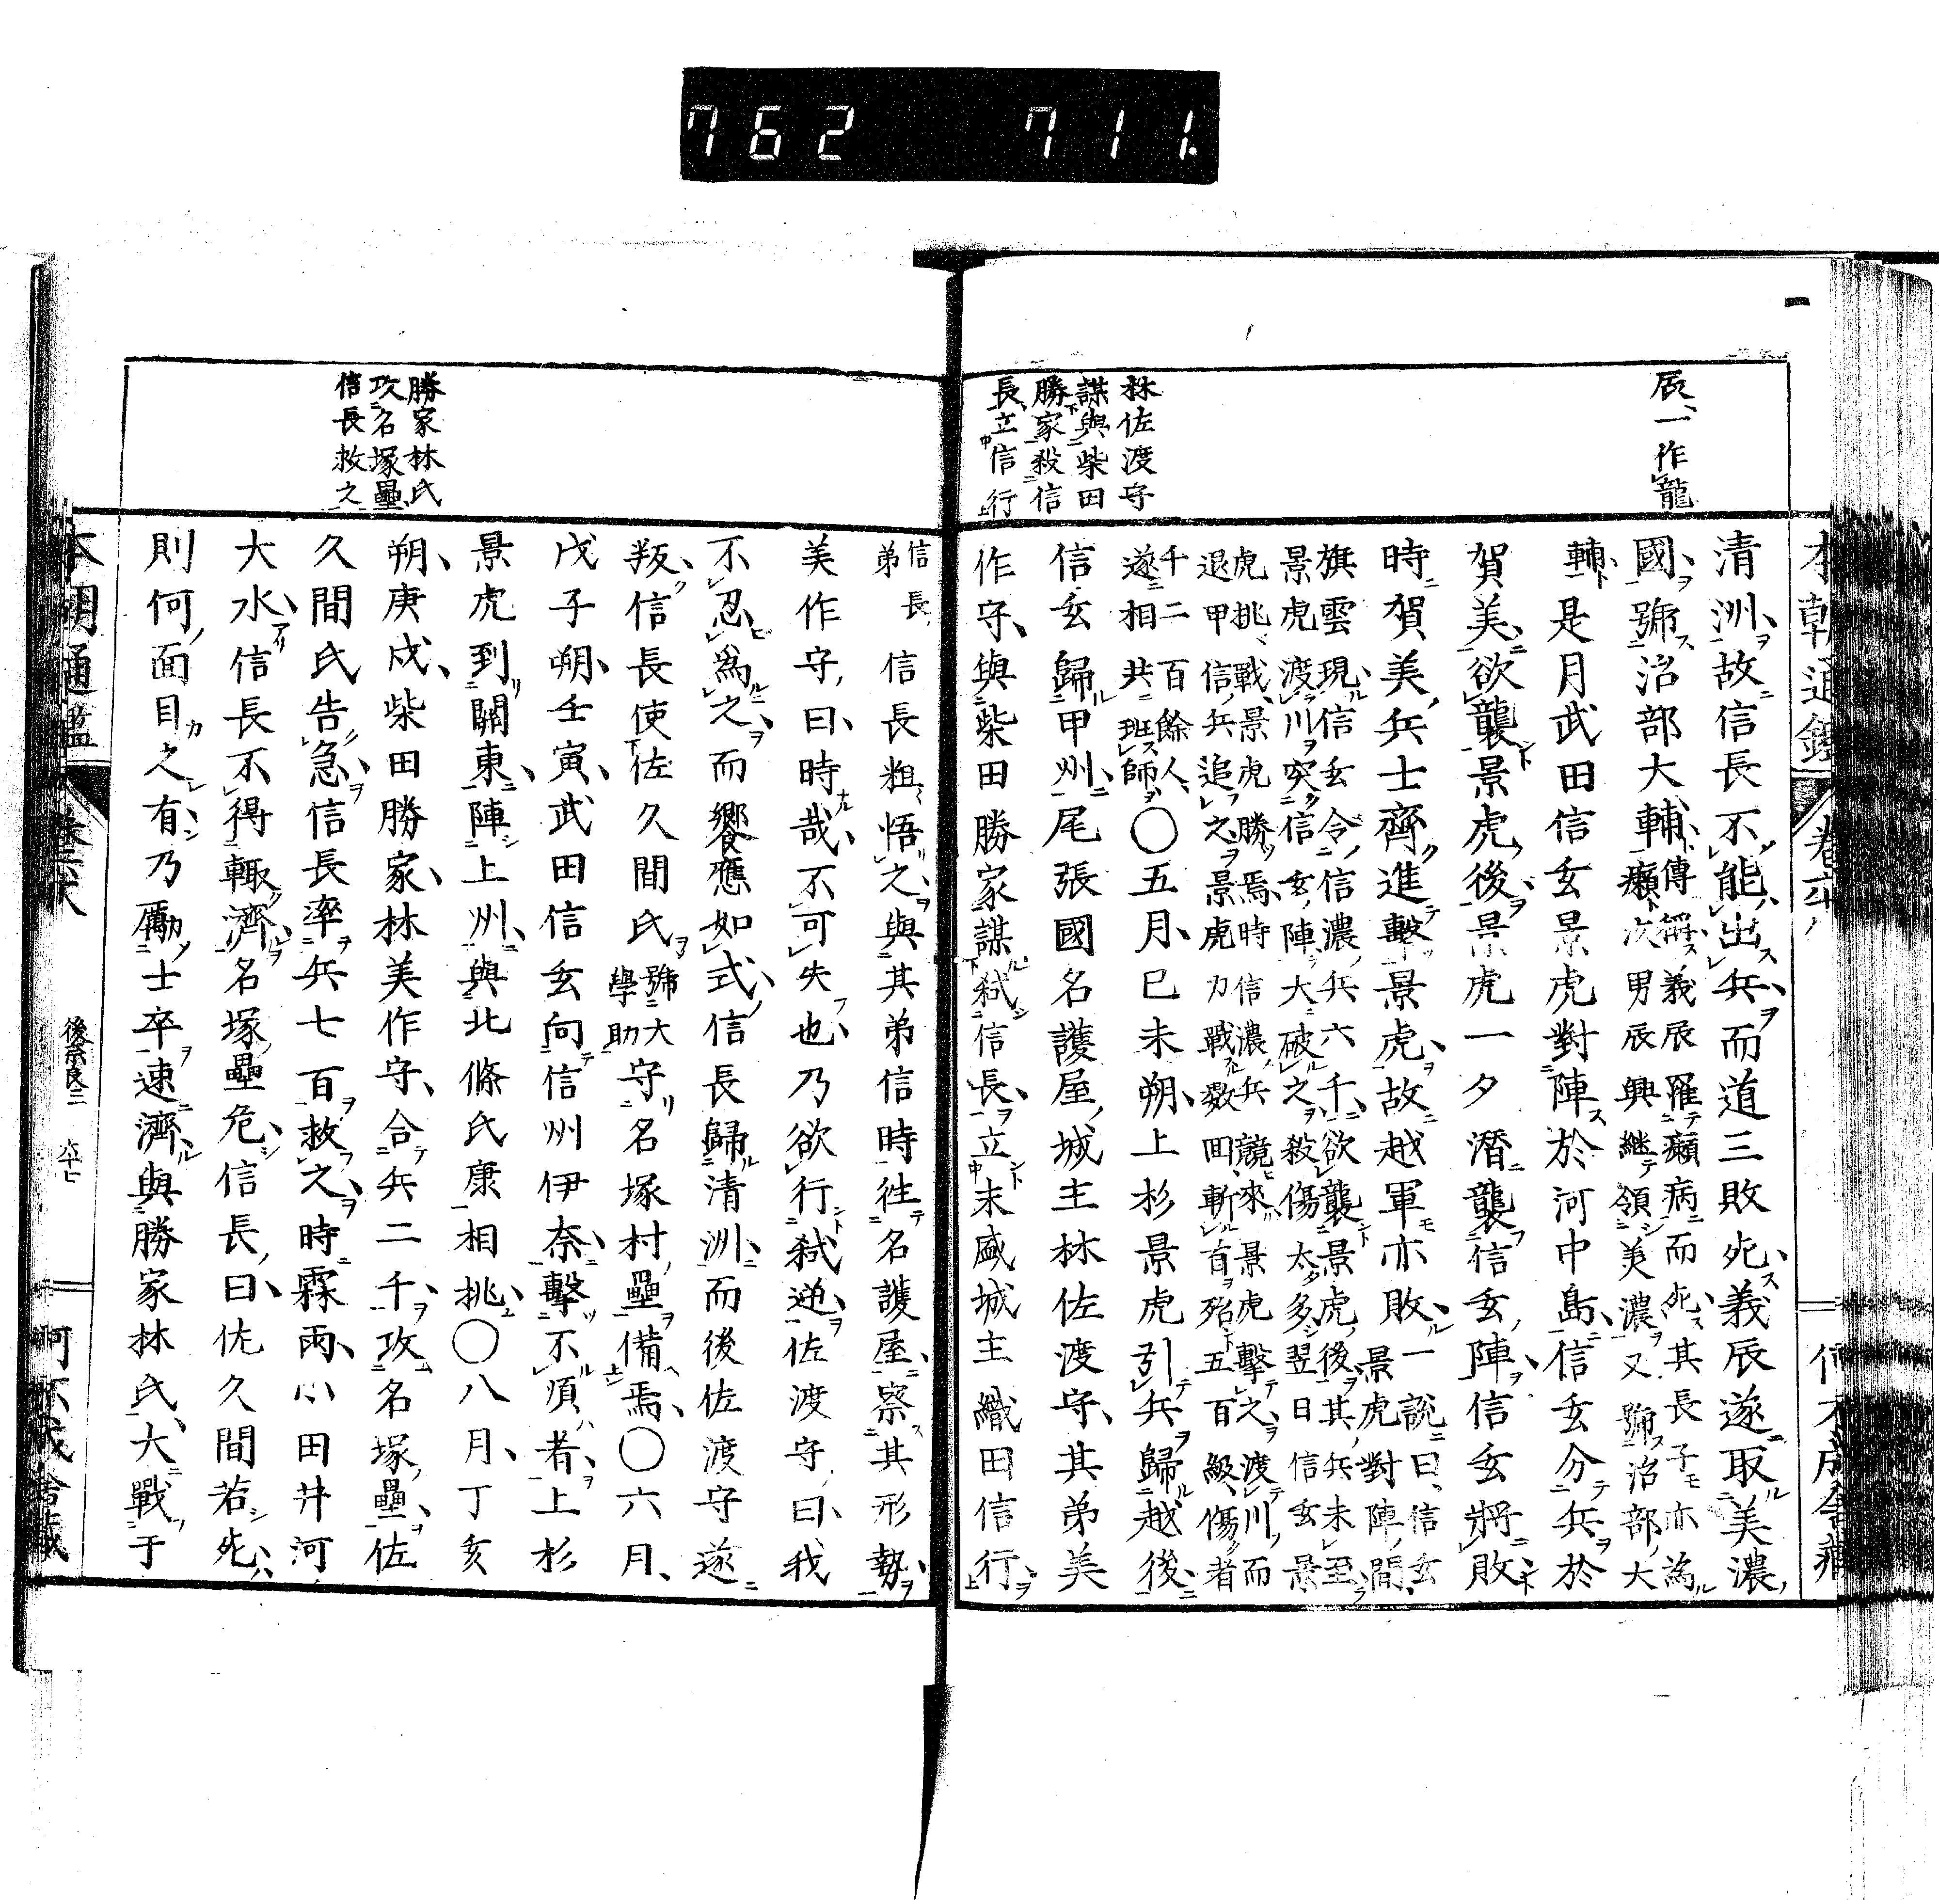 762 711.
辰、一作龍
林佐渡守
謀與柴田
勝家殺信
長立信行
清洲故信長不能出兵而道三敗死義辰遂取美濃
國號治部大輔傳稱義辰羅癩病而死其長子亦為
癩次男辰興継領美濃又號治部大
輔是月武田信玄景虎對陣於河中島信玄分兵於
賀美欲襲景虎後景虎一夕潛襲信玄陣信玄將敗
時賀美兵士齊進擊景虎故越軍亦敗一説曰信玄
景虎對陣間
旗雲現信玄令信濃兵六千欲襲景虎後其兵未至
景虎渡川突信玄陣大破之殺傷太多翌日信玄景
虎挑戰景虎勝焉時信濃兵競來景虎擊之渡川而
退甲信兵追之景虎力戰數回斬首殆五百級傷者
千二百餘人
遂相共班師〇五月己未朔上杉景虎引兵歸越後
信玄歸甲州尾張國名護屋城主林佐渡守其弟美
作守與柴田勝家謀弑信長立末盛城主織田信行
信長
弟 信長粗悟之與其弟信時往名護屋察其形勢
美作守曰時哉不可失也乃欲行弑逆佐渡守曰我
不忍為之而饗應如式信長歸清洲而後佐渡守遂
叛信長使佐久間氏號大
學助守名塚村壘備焉〇六月
戊子朔壬寅武田信玄向信州伊奈擊不順者上杉
景虎到關東陣上州與北條氏康相挑〇八月丁亥
朔庚戌柴田勝家林美作守合兵二千攻名塚壘佐
久間氏告急信長率兵七百救之時霖雨小田井河
大水信長不得輙濟名塚壘危信長曰佐久間若死
則何面目之有乃勵士卒速濟與勝家林氏大戰于
勝家林氏
攻名塚壘
信長救之
本朝通鑑
後奈良三